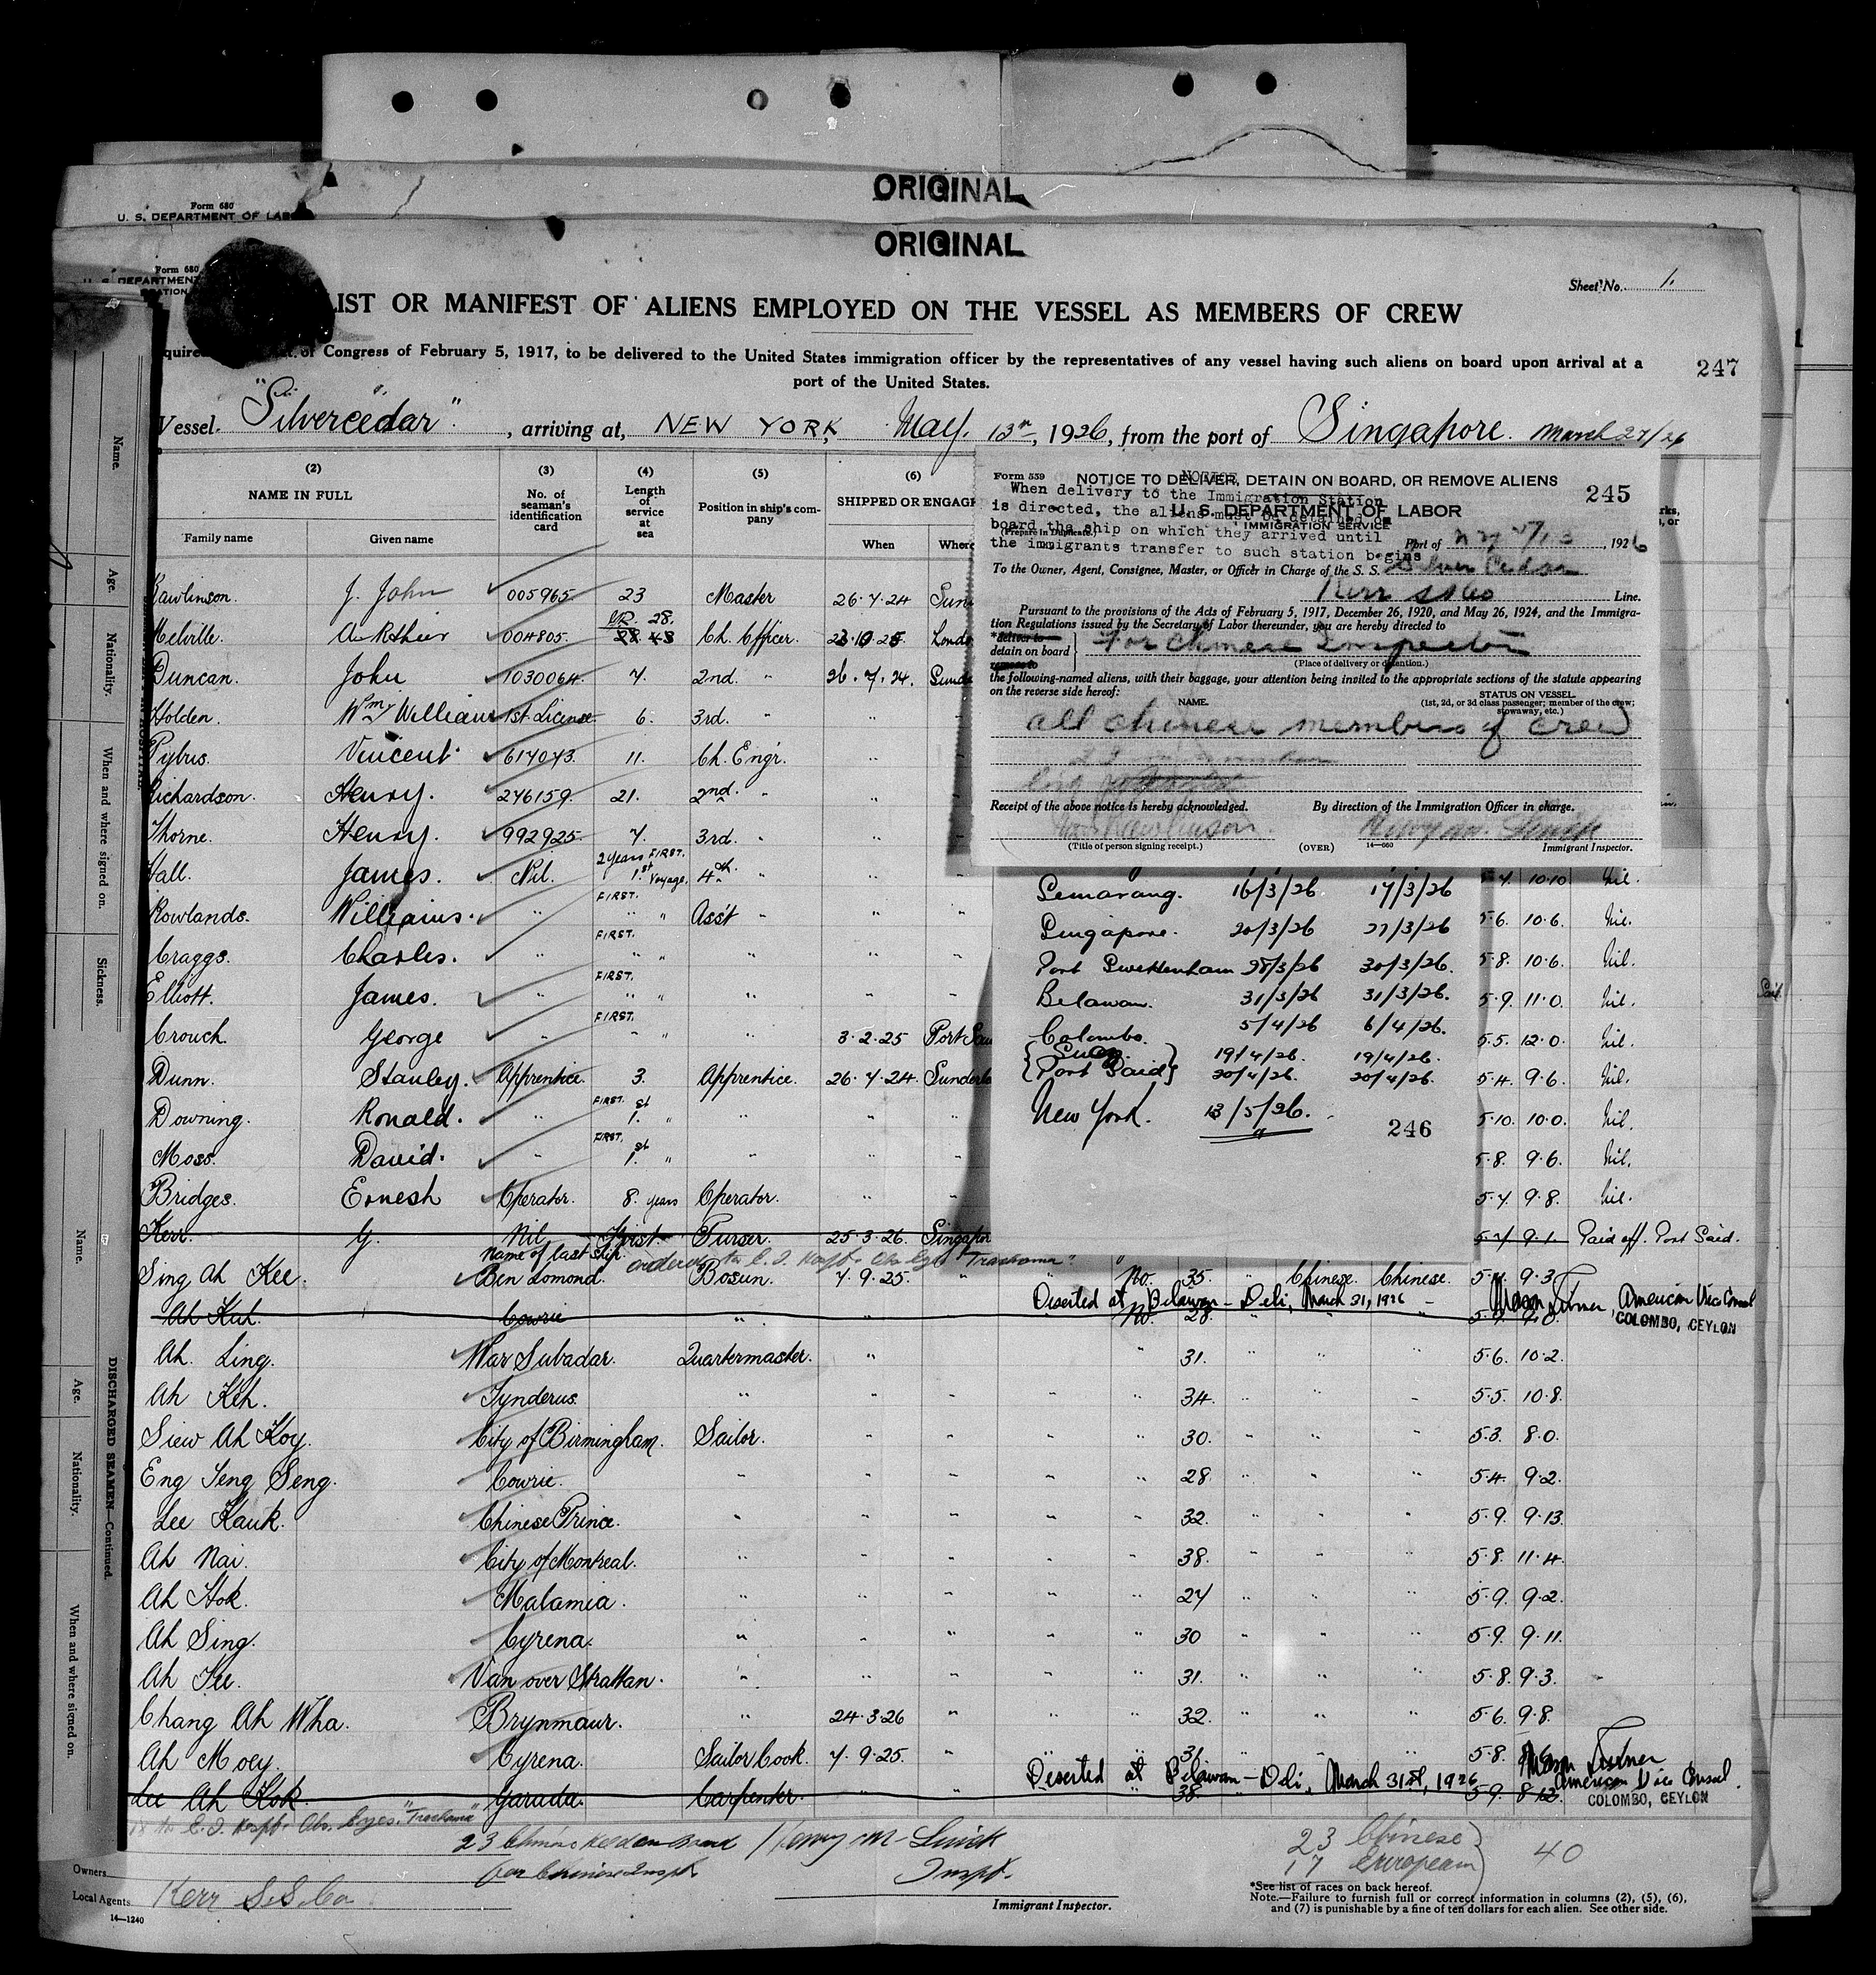 ORIGINAL
Form 680
U. S. DEPARTMENT OF LABO
ORIGINAL
Form 680
U. S. DEPARTMENT
Sheet No. 1.
LIST OR MANIFEST OF ALIENS EMPLOYED ON THE VESSEL AS MEMBERS OF CREW
of Congress of February 5, 1917, to be delivered to the United States immigration officer by the representatives of any vessel having such aliens on board upon arrival at a
port of the United States.
247
Vessel "Silvercedar", arriving at, NEW YORK, May. 13th, 1926, from the port of Singapore. March 27/26
(2) (3) (4) (5) (6)
NAME IN FULL No. of seaman's identification card Length of service at sea Position in ship's company SHIPPED OR ENGAG
Family name Given name When Where
Rawlinson. J. John 005965 23 Master 26.7.24 Sun
Melville. Arthur 004805. 28. Ch. Officer. Londo
Duncan. John 1030064 7. 2nd. " 26.7.24. Sunde
Holden. Wm William 1st License. 6. 3rd. " " "
Pybus. Vincent 614073. 11. Ch. Engr. " "
Richardson. Henry. 246159. 21. 2nd. " " "
Thorne. Henry. 992925. 7. 3rd. " " "
Hall. James. Nil. 2 years FIRST. 1.st Voyage. 4th. " " " 10.10 Nil.
Rowlands. Williams. " FIRST. " " Ass't " " " 5.6. 10.6. Nil.
Craggs. Charles. " FIRST. " " " " " 5.8. 10.6. Nil.
Elliott. James. " FIRST. " " " " " 5.9. 11.0. Nil.
Crouch. George " FIRST. " " " 3.2.25 Port 5.5. 12.0. Nil.
Dunn. Stanley. Apprentice. 3. Apprentice. 26.7.24. Sunder 5.4. 9.6. Nil.
Downing. Ronald. " FIRST. 1.st " " " " 5.10. 10.0. Nil.
Moss. David. " FIRST. 1.st " " " " 5.8. 9.6. Nil.
Bridges. Ernest Operator. 8. years Operator. " " 5.7. 9.8. Nil.
Kerr. G. Nil First Purser. 25.3.26. Singapor 5.7 9.1. Paid off. Port Said.
Name of last ship. ordered to E. I. Hospt. Obs. Eyes "Trachoma"
Sing Ah Kee. Ben Lomond. Bosun. 7.9.25. " " No. 35. " Chinese. Chinese. 9.3
Deserted at Belawan - Deli, March 31, 1926 - Mason Turner, American Vice Consul
COLOMBO, CEYLON
Ah Kah. Cowrie " " No. 28. " " " 5.9. 9.0.
Ah Ling. War Subadar. Quartermaster. " " 31. " " " 5.6. 10.2.
Ah Keh. Tynderus. " " " " " 34. " " " 5.5. 10.8.
Siew Ah Koy. City of Birmingham. Sailor. " " " " 30. " " " 5.3. 8.0.
Eng Seng Seng. Cowrie. " " " " " 28. " " " 5.4. 9.2.
Lee Kauk. Chinese Prince. " " " " " 32. " " " 5.9. 9.13.
Ah Nai. City of Montreal. " " " " " 38. " " " 5.8. 11.4.
Ah Hok. Malamia. " " " " " 24 " " " 5.9. 9.2.
Ah Sing. Cyrena. " " " " " 30 " " " 5.9. 9.11.
Ah Kee. Van over Strattan. " " " " " 31. " " " 5.8. 9.3.
Chang Ah Wha. Brynmaur. " 24.3.26 " " " 32. " " " 5.6. 9.8.
Ah Moey. Cyrena. Sailor Cook. 7.9.25. " " " 31. " " " 5.8.
Deserted at Belawan - Deli, March 31st, 1926 Mason Turner
American Vice Consul.
COLOMBO, CEYLON
Lee Ah Kok. Garuda. Carpenter. " " " 38. 5.9. 8.12.
to E. I. Hospt. Obs. Eyes. "Trachoma"
23 Chinese held on board Henry M. Linick
for Chinese Inspt. Inspt.
23 Chinese
17 European
40
Owners
Local Agents Kerr S.S. Co
14—1240
Immigrant Inspector.
*See list of races on back hereof.
Note.—Failure to furnish full or correct information in columns (2), (5), (6),
and (7) is punishable by a fine of ten dollars for each alien. See other side.
Form 559 NOTICE TO DELIVER, DETAIN ON BOARD, OR REMOVE ALIENS
245
NOTICE
When delivery to the Immigration Station
is directed, the aliens must be detained on
board the ship on which they arrived until
the immigrants transfer to such station begins
U. S. DEPARTMENT OF LABOR
IMMIGRATION SERVICE
(Prepare in Duplicate.)
Port of N Y 5/13, 1926
To the Owner, Agent, Consignee, Master, or Officer in Charge of the S. S. Silver Cedar
Kerr SS Co Line.
Pursuant to the provisions of the Acts of February 5, 1917, December 26, 1920, and May 26, 1924, and the Immigra-
tion Regulations issued by the Secretary of Labor thereunder, you are hereby directed to
*deliver to
detain on board
remove to
For Chinese Inspection
(Place of delivery or detention.)
the following-named aliens, with their baggage, your attention being invited to the appropriate sections of the statute appearing
on the reverse side hereof:
NAME. STATUS ON VESSEL.
(1st, 2d, or 3d class passenger; member of the crew; stowaway, etc.)
all chinese members of crew
Receipt of the above notice is hereby acknowledged. By direction of the Immigration Officer in charge.
Rawlinson. Henry M. Linick
(Title of person signing receipt.) (OVER) 14—660 Immigrant Inspector.
Semarang. 16/3/26. 17/3/26
Singapore. 20/3/26 27/3/26
Port Swettenham 28/3/26 30/3/26.
Belawan. 31/3/26 31/3/26.
Colombo. 5/4/26 6/4/26.
Suez. 19/4/26. 19/4/26.
Port Said 20/4/26. 20/4/26.
New York. 13/5/26.
246
Name.
Age.
Nationality.
When and where signed on.
Sickness.
Name.
Age.
Nationality.
When and where signed on.
DISCHARGED SEAMEN—Continued.